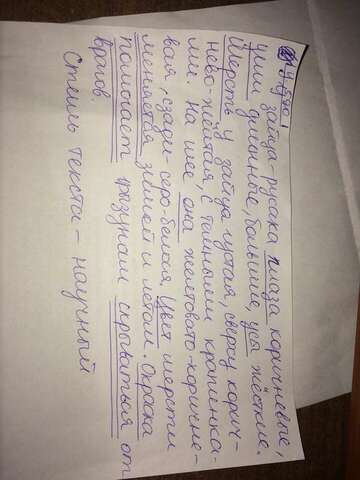 У зайца-русака глаза коричневые,
уши длинные, большие, усы жёсткие.
Шерсть у зайца густая, сверху корич-
нево-жёлтая, с тёмными крапинка-
ми. На шее она желтовато-коричне-
вая, сзади-серо-белая. Цвет шерсти
меняется зимой и летом. Окраска
помогает грязунам скрываться от
врагов.
Стиль текста - научный